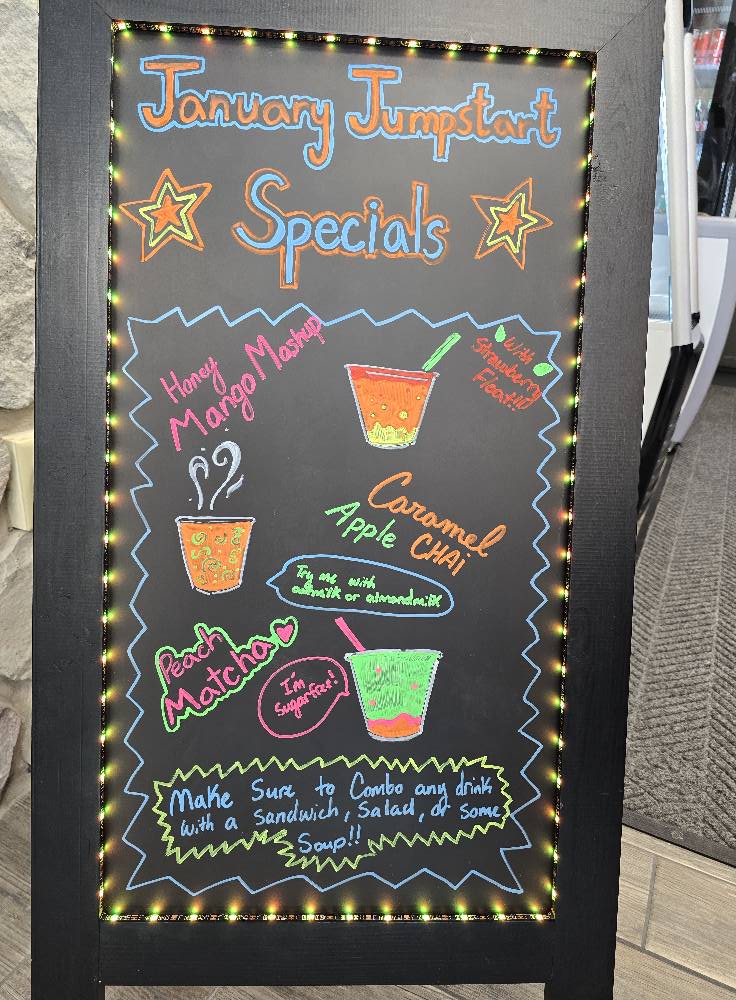 January Jumpstart
Specials
Honey
Mango Mashup
With
Strawberry
Float!!
Caramel
Apple CHAI
Try me with
oatmilk or almondmilk
Peach
Matcha
I'm
Sugarfree!
Make Sure to Combo any drink
with a sandwich, salad, or some
Soup!!